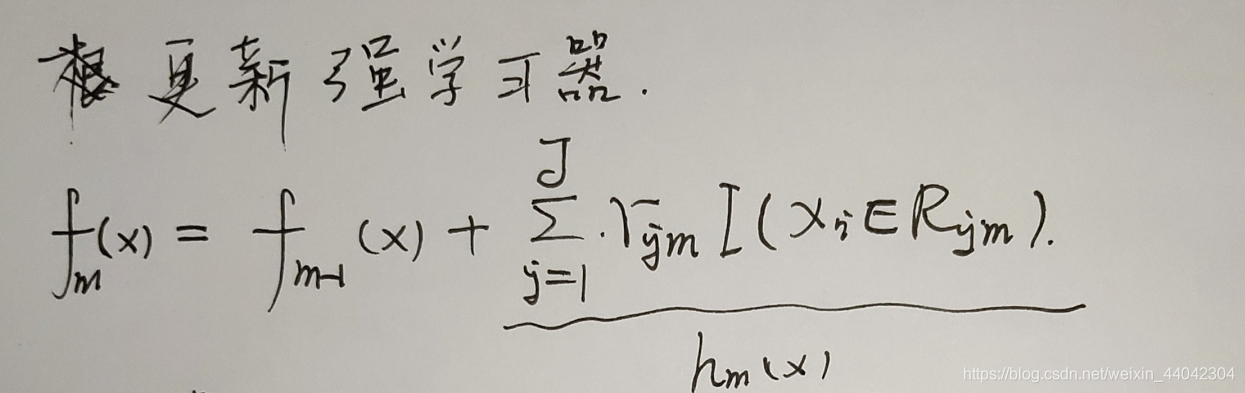 更新强学习器.
f_m(x) = f_{m-1}(x) + \sum_{j=1}^{J} r_{jm} I(x_i ∈ R_{jm}).
h_m(x)
https://blog.csdn.net/weixin_44042304